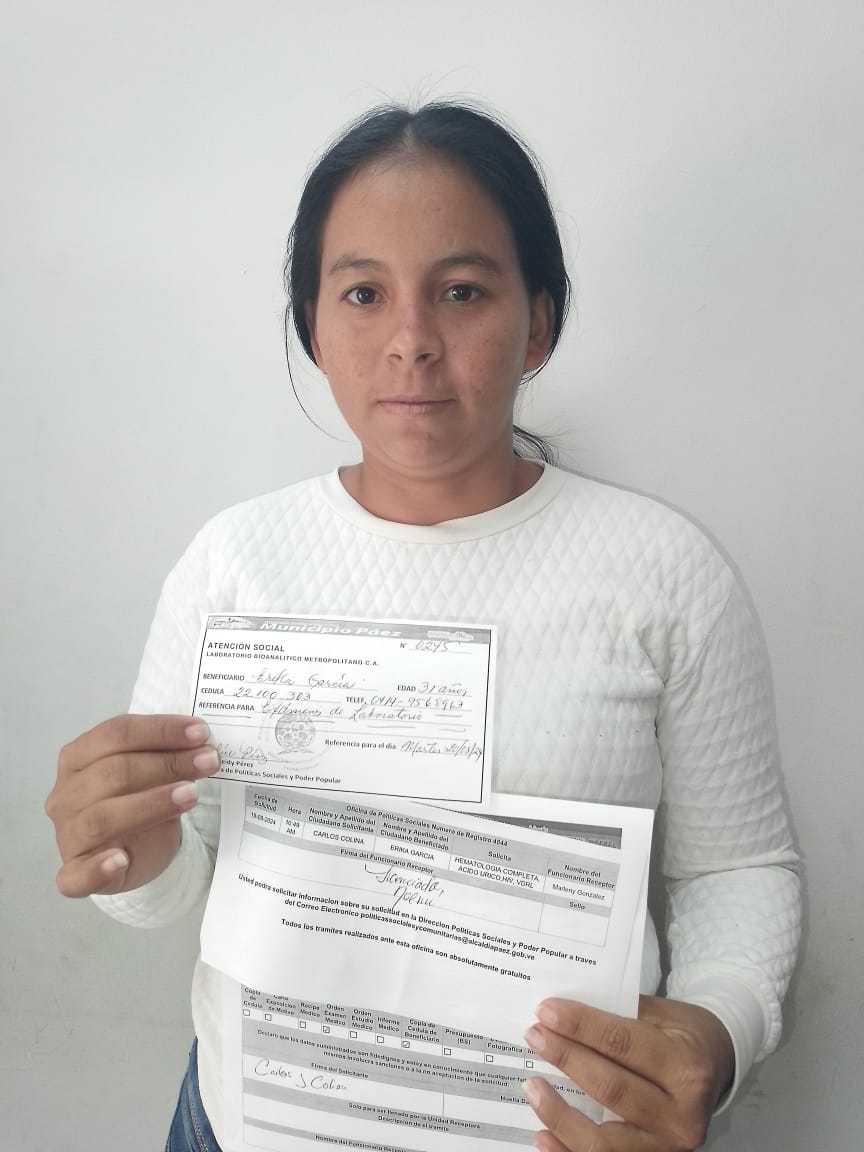 Municipio Páez
ATENCIÓN SOCIAL
Nº 0245
LABORATORIO BIOANALITICO METROPOLITANO C.A.
BENEFICIARIO Erika García EDAD 31 años
CEDULA 22.100.303 TELEF. 0414-9568963
REFERENCIA PARA Exámenes de Laboratorio
Referencia para el día Martes 20/08/24
eidy Pérez
a de Políticas Sociales y Poder Popular
Oficina de Politicas Sociales Numero de Registro 4844
Fecha de Solicitud Hora Nombre y Apellido del Ciudadano Solicitante Nombre y Apellido del Ciudadano Beneficiado Solicita Nombre del Funcionario Receptor
19-08-2024 10:49 AM CARLOS COLINA ERIKA GARCIA HEMATOLOGIA COMPLETA, ACIDO URICO,HIV, VDRL Marleny Gonzalez
Firma del Funcionario Receptor Sello
Licenciada,
Usted podra solicitar informacion sobre su solicitud en la Direccion Politicas Sociales y Poder Popular a traves
del Correo Electronico politicassocialesycomunitarias@alcaldiapaez.gob.ve
Todos los tramites realizados ante esta oficina son absolutamente gratuitos
Copia de Cedula Carta Exposicion de Motivo Recipe Medico Orden Examen Medico Orden Estudio Medico Informe Medico Copia de Cedula de Beneficiario Presupuesto (BS) Fotografica
Declaro que los datos suministrados son fidedignos y estoy en conocimiento que cualquier
mismos involucra sanciones o a la no aceptacion de la solicitud.
Firma del Solicitante
Carlos J Colina
Huella
Solo para ser llenado por la Unidad Receptora
Descripcion del tramite
Nombre del Funcionario